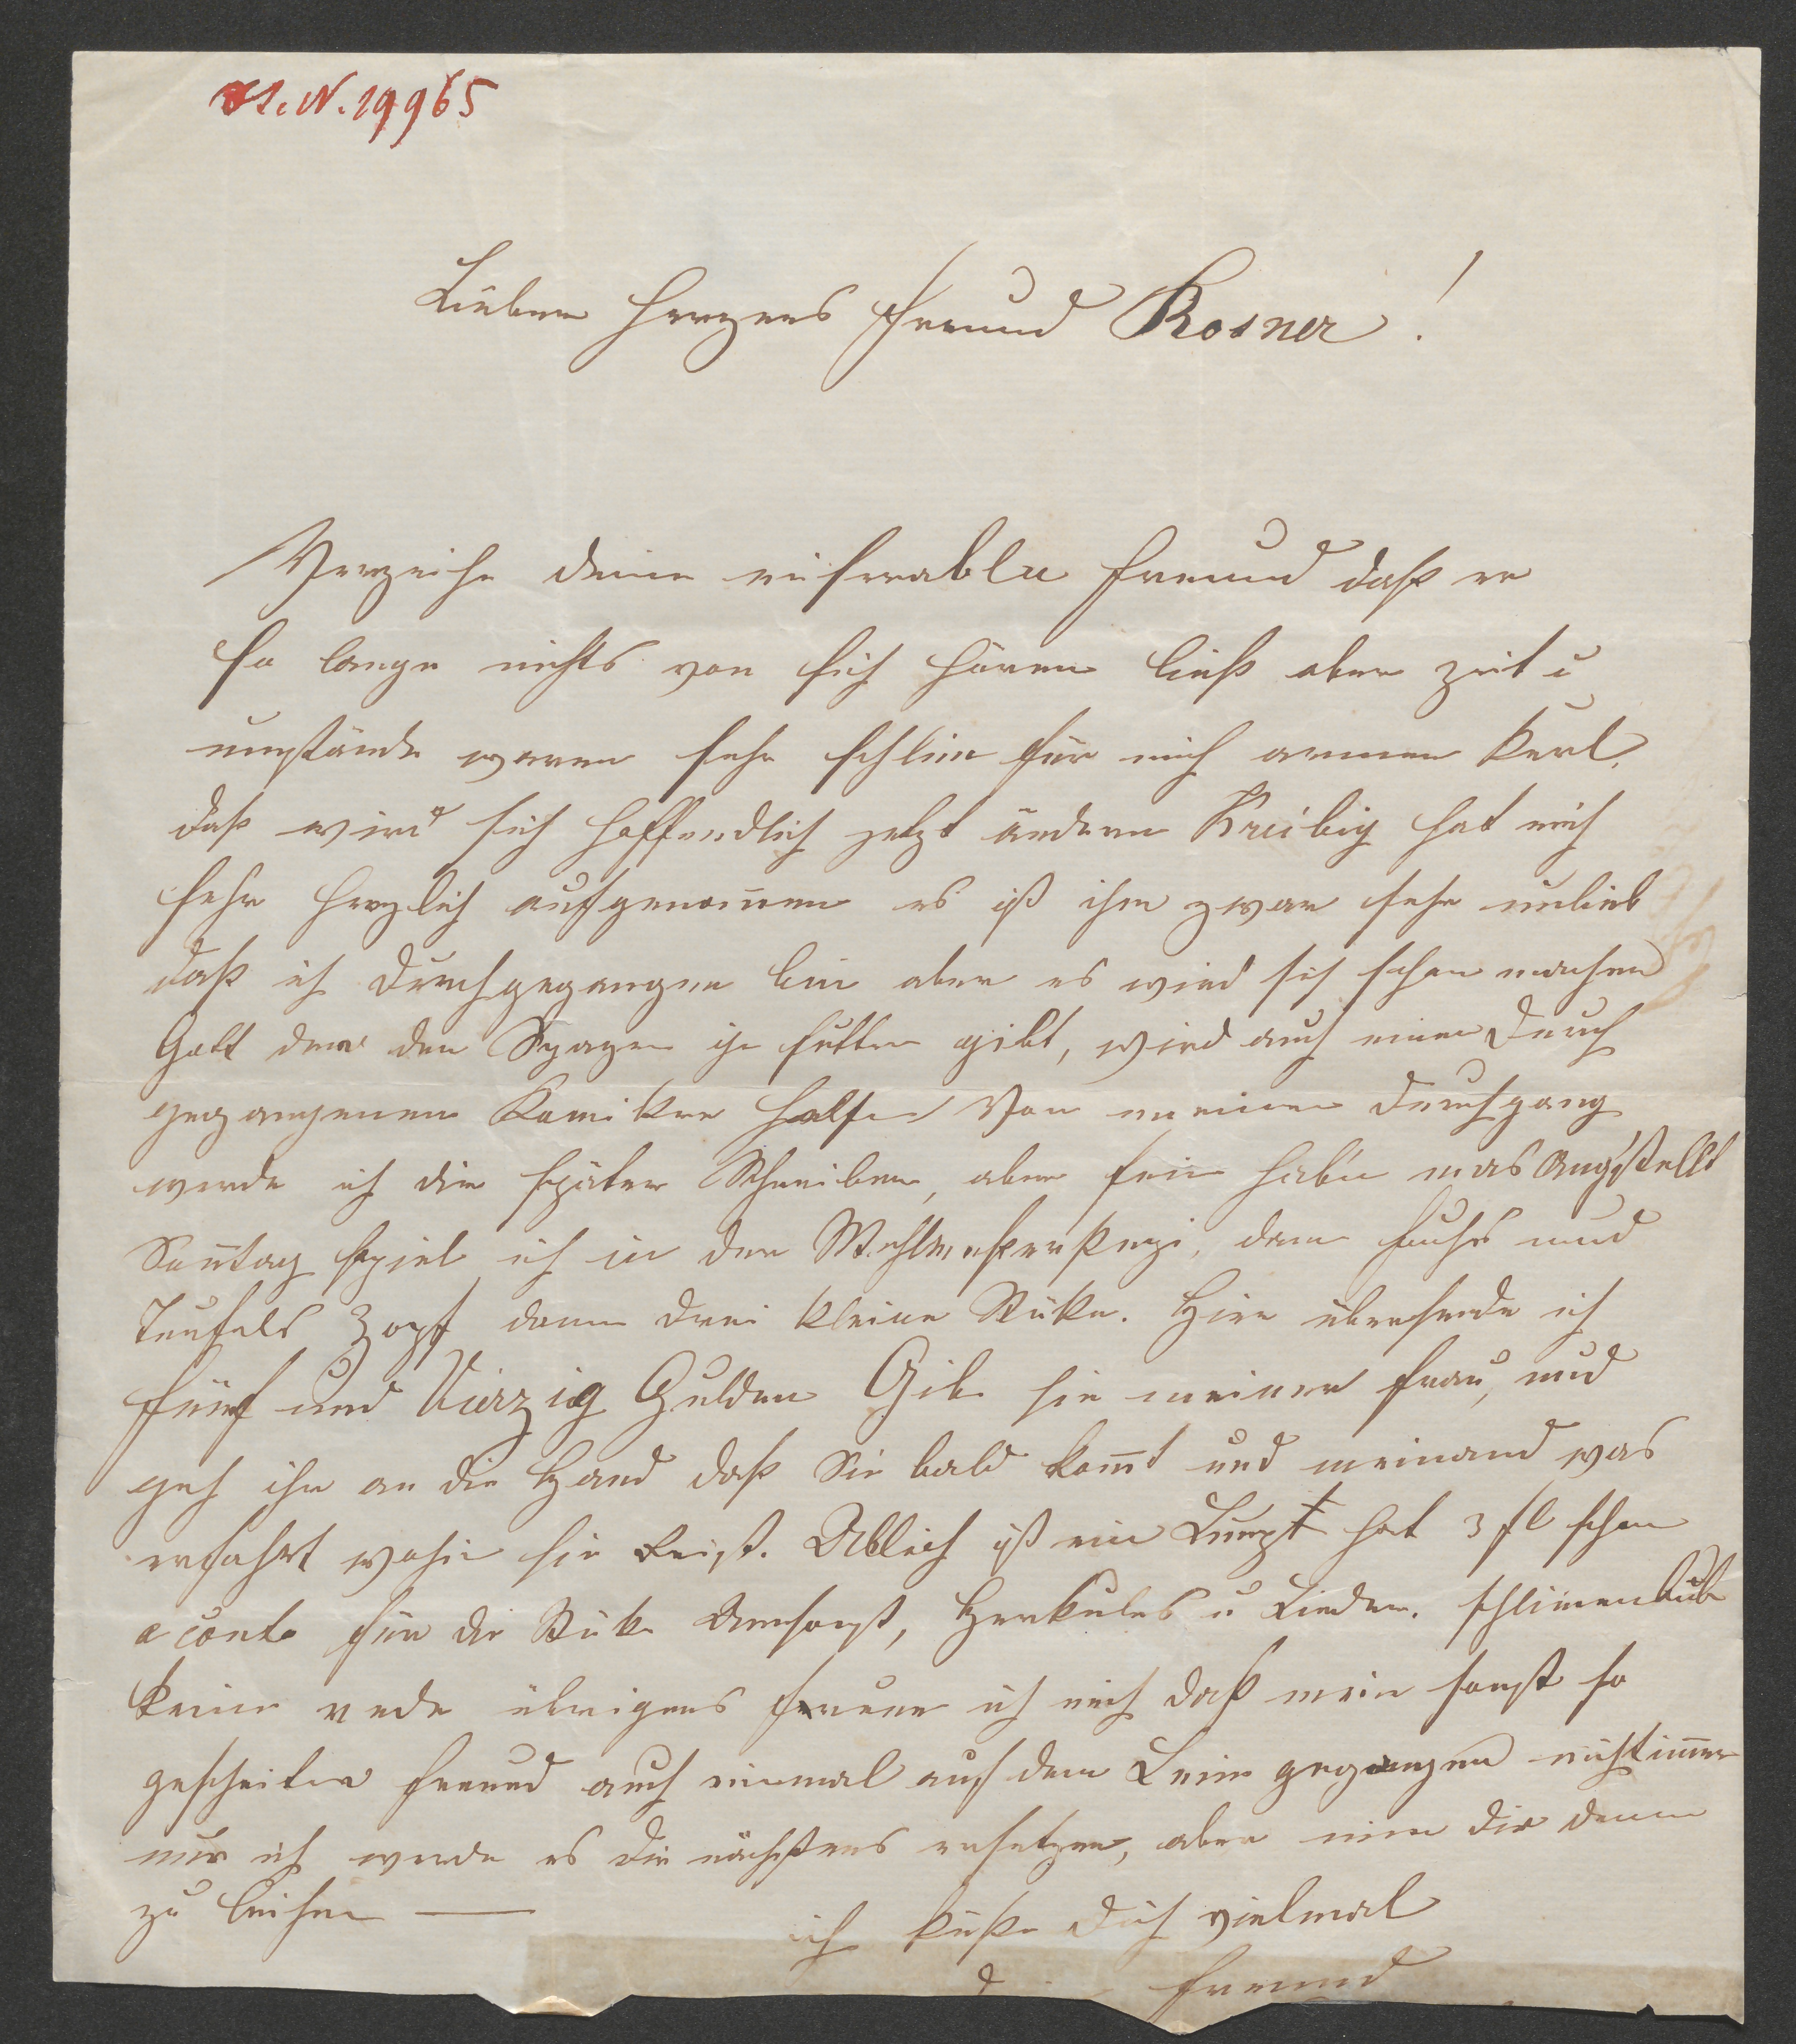 I. N. 19965
Lieber Herzens Freund Rosner!
Verzeihe deine miserable Freund daß er
so lange nichts von sich hören ließ aber Zeit u
umstände waren sehr schlim für mich armen Kerl.
daß wird sich hoffendlich jetzt ändern Kreibig hat mich
sehr herzlich aufgenom̄en es ist ihm zwar sehr unlieb
daß ich durchgegangen bin aber es wird sich schon machen
Gott der den Spazen ihr futter gibt, wird auch einen durch
gegangenen Komiker helfen Von meinen Durchgang
werde ich dir später Schreiben, aber fein haben mas Ang'stellt
Son̄tag spiel ich in der dem Fuchs und
Teufels Zopf dann drei kleine Stüke. Hier übersende ich
fünf und Vierzig Gulden Gib sie meiner Frau, und
geh ihr an die Hand daß Sie bald kom̄t und niemand was
erfahrt wohin sie Reist. ist ein Lump hat 3 fl schon
a conto für die Stüke Umsonst, Herkules u Lieder.
keine rede übrigens freuen ich mich daß mein sonst so
gescheiter Freund auch einmal auf dem Leim gegangen nicht im̄er
nur ich werde es dir nächstens ersetzen, aber nim dir denn
zu leihen —
ich küße dich vielmal
Freund